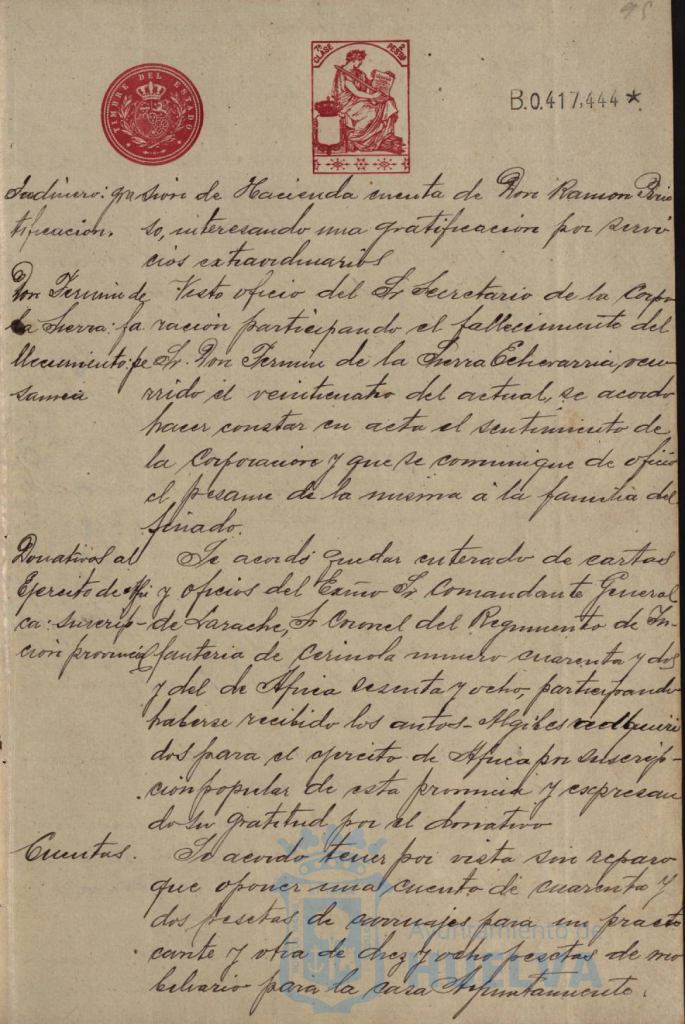 95
TIMBRE DEL ESTADO
7ª CLASE
2 PESETAS
B.0.417,444 *
gra
tificacion.
sion de Hacienda cuenta de Don Ramon
so, interesando una gratificacion por servi
cios extraordinarios
Don Fermin de
la Sierra: fa
llecimiento: pe
same
Visto oficio del Sr Secretario de la Corpo
ración participando el fallecimiento del
Sr. Don Fermin de la Sierra Echevarria, ocu
rrido el veinticuatro del actual, se acordo
hacer constar en acta el sentimiento de
la Corporacion y que se comunique de oficio
el pesame de la misma á la familia del
finado.
Donativos al
Ejercito de Afri
ca: suscrip-
ción provincial
Se acordó quedar enterado de cartas
y oficios del Exmo Sr Comandante General
de Larache, Sr Coronel del Regimiento de In-
fanteria de Ceriñola número cuarenta y dos
y del de Africa sesenta y ocho, participando
haberse recibido los autos-Algibes adquiri
dos para el ejercito de Africa por suscrip-
ción popular de esta provincia y expresan
do su gratitud por el donativo
Cuentas.
Se acordo tener por vista sin reparo
que oponer una cuenta de cuarenta y
dos pesetas de carruajes para un practi
cante y otra de diez y ocho pesetas de mo
biliario para la casa Ayuntamiento.
Ayuntamiento de
HUELVA